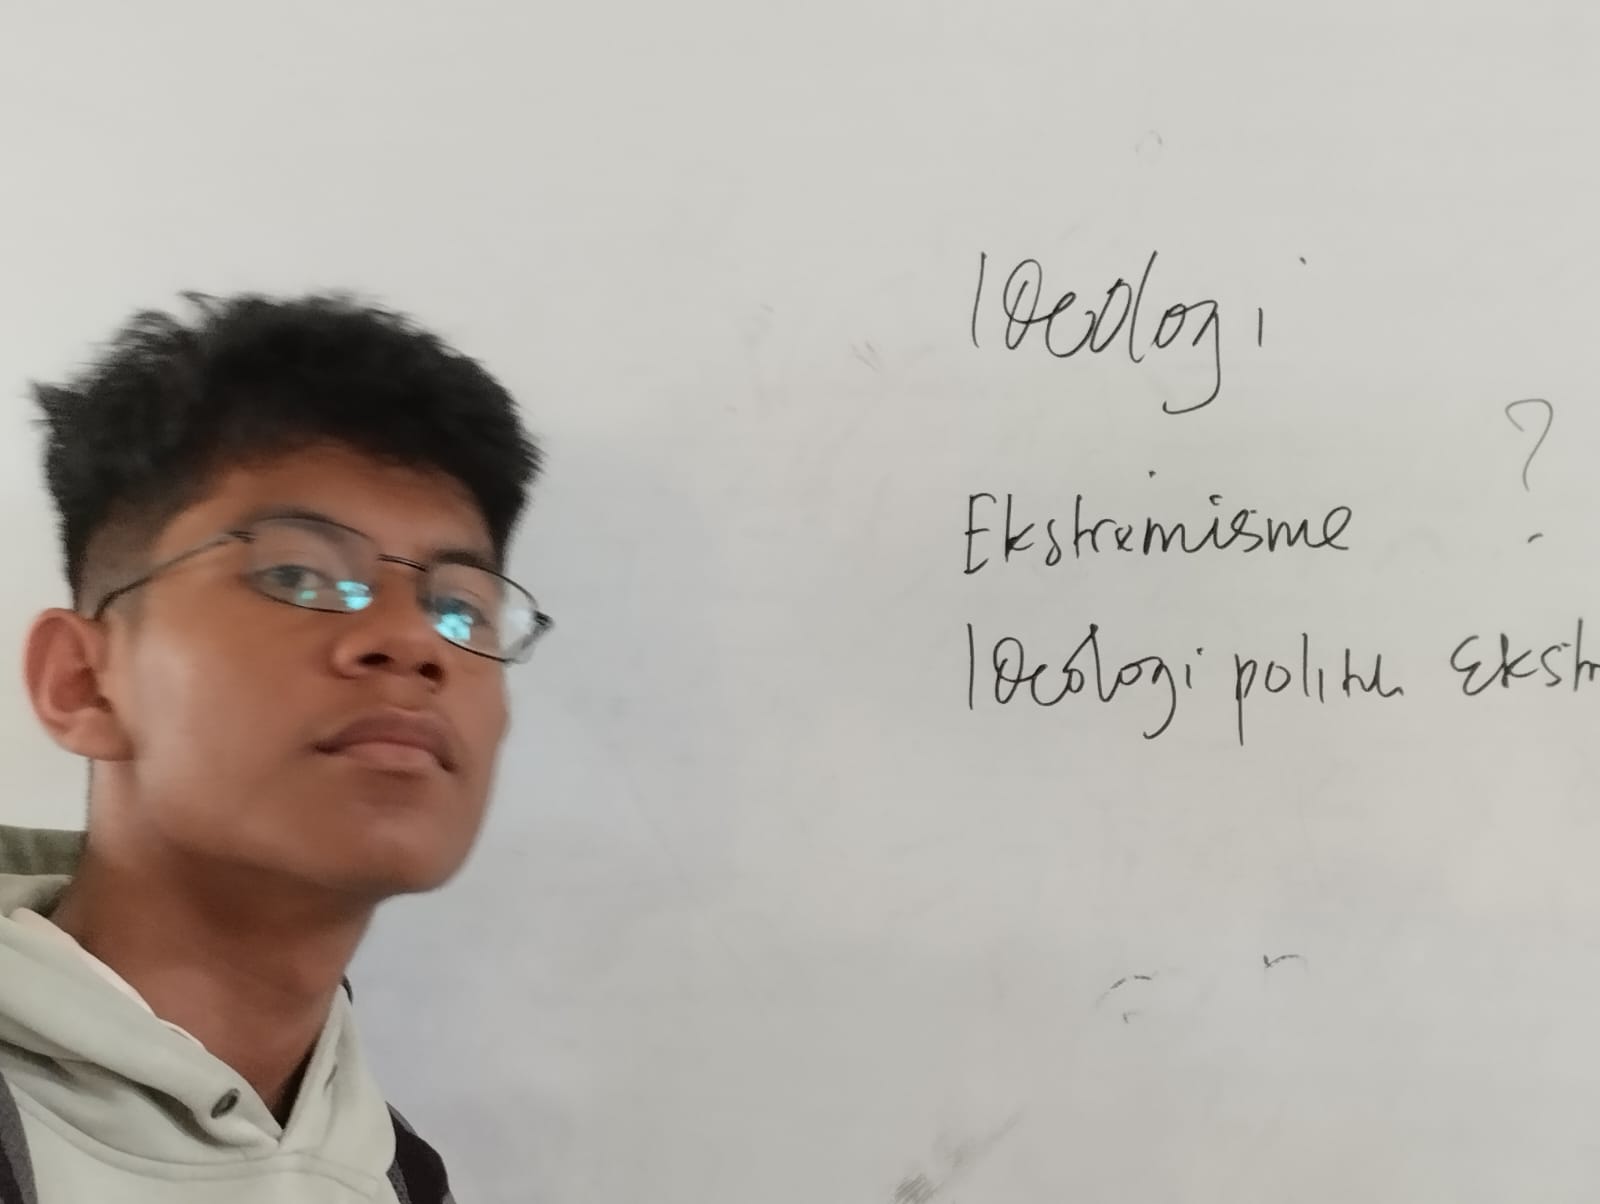 Ideologi
?
Ekstremisme
Ideologi politik Ekstr